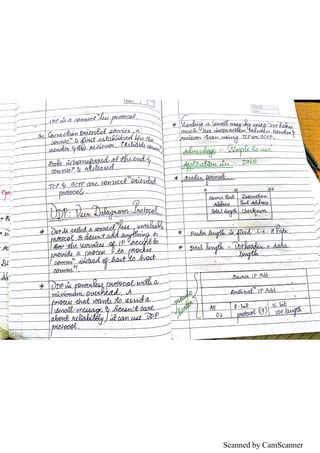 UDP is a connectⁿless protocol
In Connection oriented service, a
connecⁿ is first established b/w the
sender & the receiver. (Reliable commⁿ)
Data is transferred at the end &
connecⁿ is released
TCP & SCTP are connectⁿ oriented
protocols
UDP: User Datagram Protocol
* UDP is called a connectⁿless, unreliable
protocol & doesn't add anything to
the services of IP except to
provide a process to process
commⁿ instead of host to host
commⁿ.
* UDP is powerless protocol with a
minimum overhead. A
process that wants to send a
small message & doesn't care
about reliability, it can use UDP
protocol.
* Sending a small msg by using UDP takes
much less interaction between sender &
receiver than using TCP or SCTP.
Advantage :- Simple to use
Application in :- DNS
* Header format
Source Port
Address
Destination
Port Address
Total length
Checksum
* Header length is fixed i.e. 8 byte
* Total length = UDP header + data
length
Pseudo
header
Source IP Add
Destinatⁿ IP Add
All
0's
8-bit
protocol
16 bit
UDP length
Scanned by CamScanner